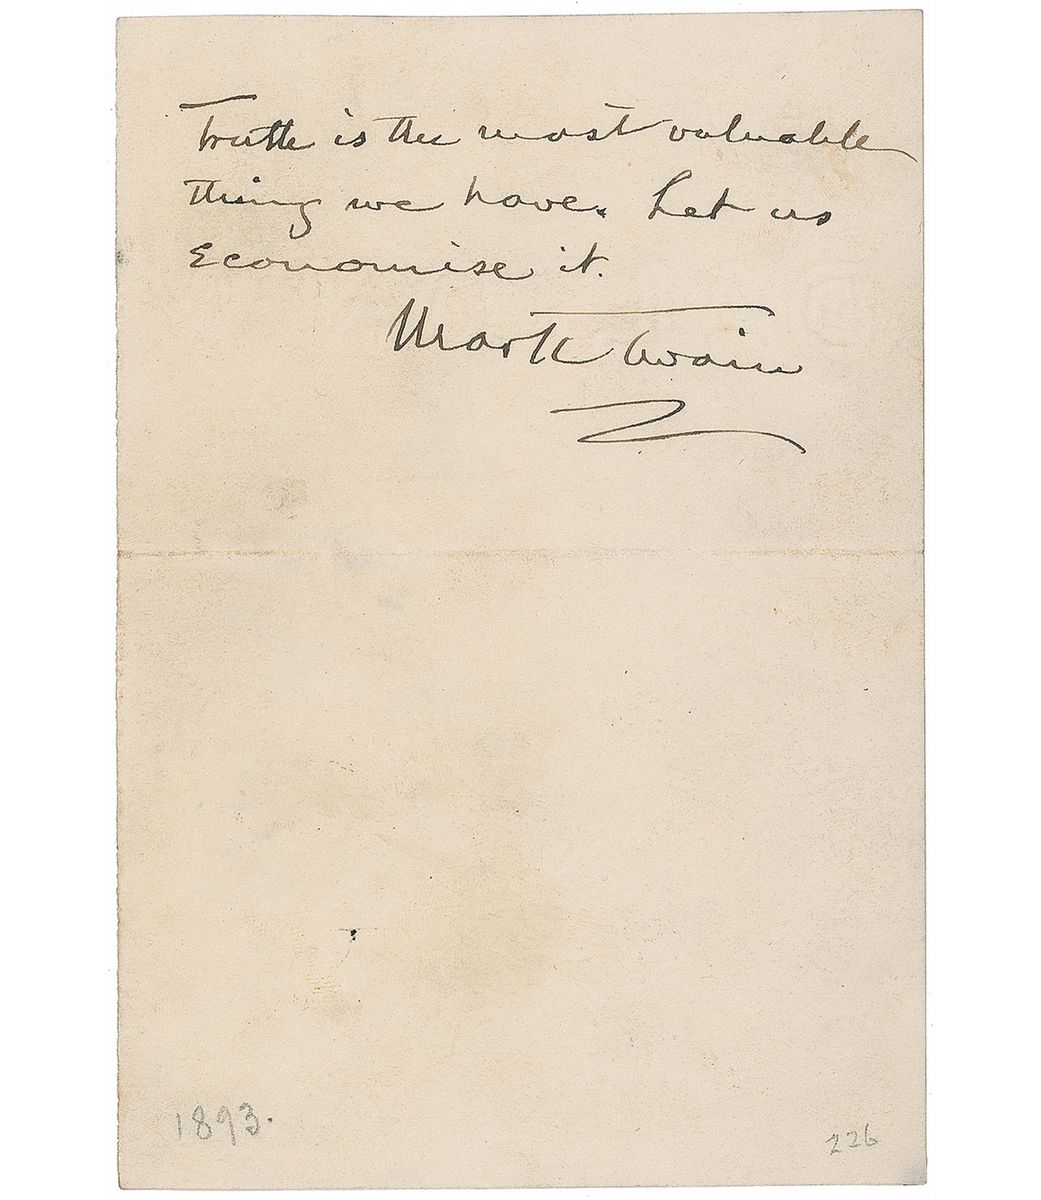 Truth is the most valuable
thing we have. Let us
economise it.
Mark Twain
1893.
226